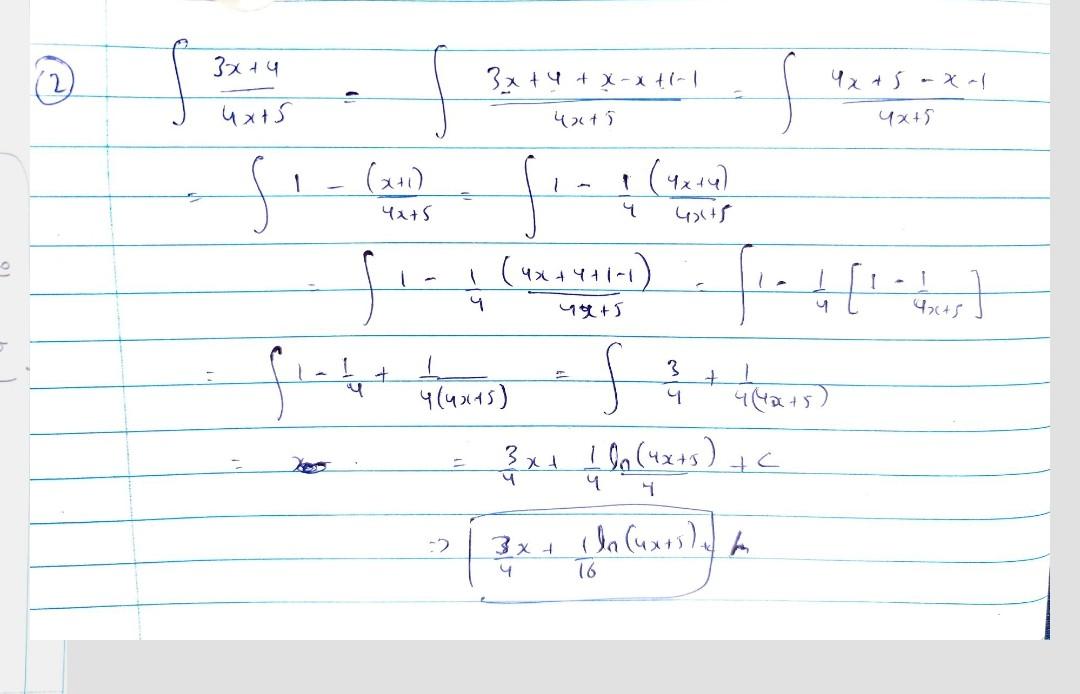 ② ∫ (3x+4)/(4x+5) = ∫ (3x+4+x-x+1-1)/(4x+5) = ∫ (4x+5-x-1)/(4x+5)
= ∫ 1 - (x+1)/(4x+5) = ∫ 1 - 1/4 (4x+4)/(4x+5)
= ∫ 1 - 1/4 (4x+4+1-1)/(4x+5) = ∫ 1 - 1/4 [1 - 1/(4x+5)]
= ∫ 1 - 1/4 + 1/(4(4x+5)) = ∫ 3/4 + 1/(4(4x+5))
= = 3/4 x + 1/4 ln(4x+5)/4 + c
=> 3/4 x + 1/16 ln(4x+5) +